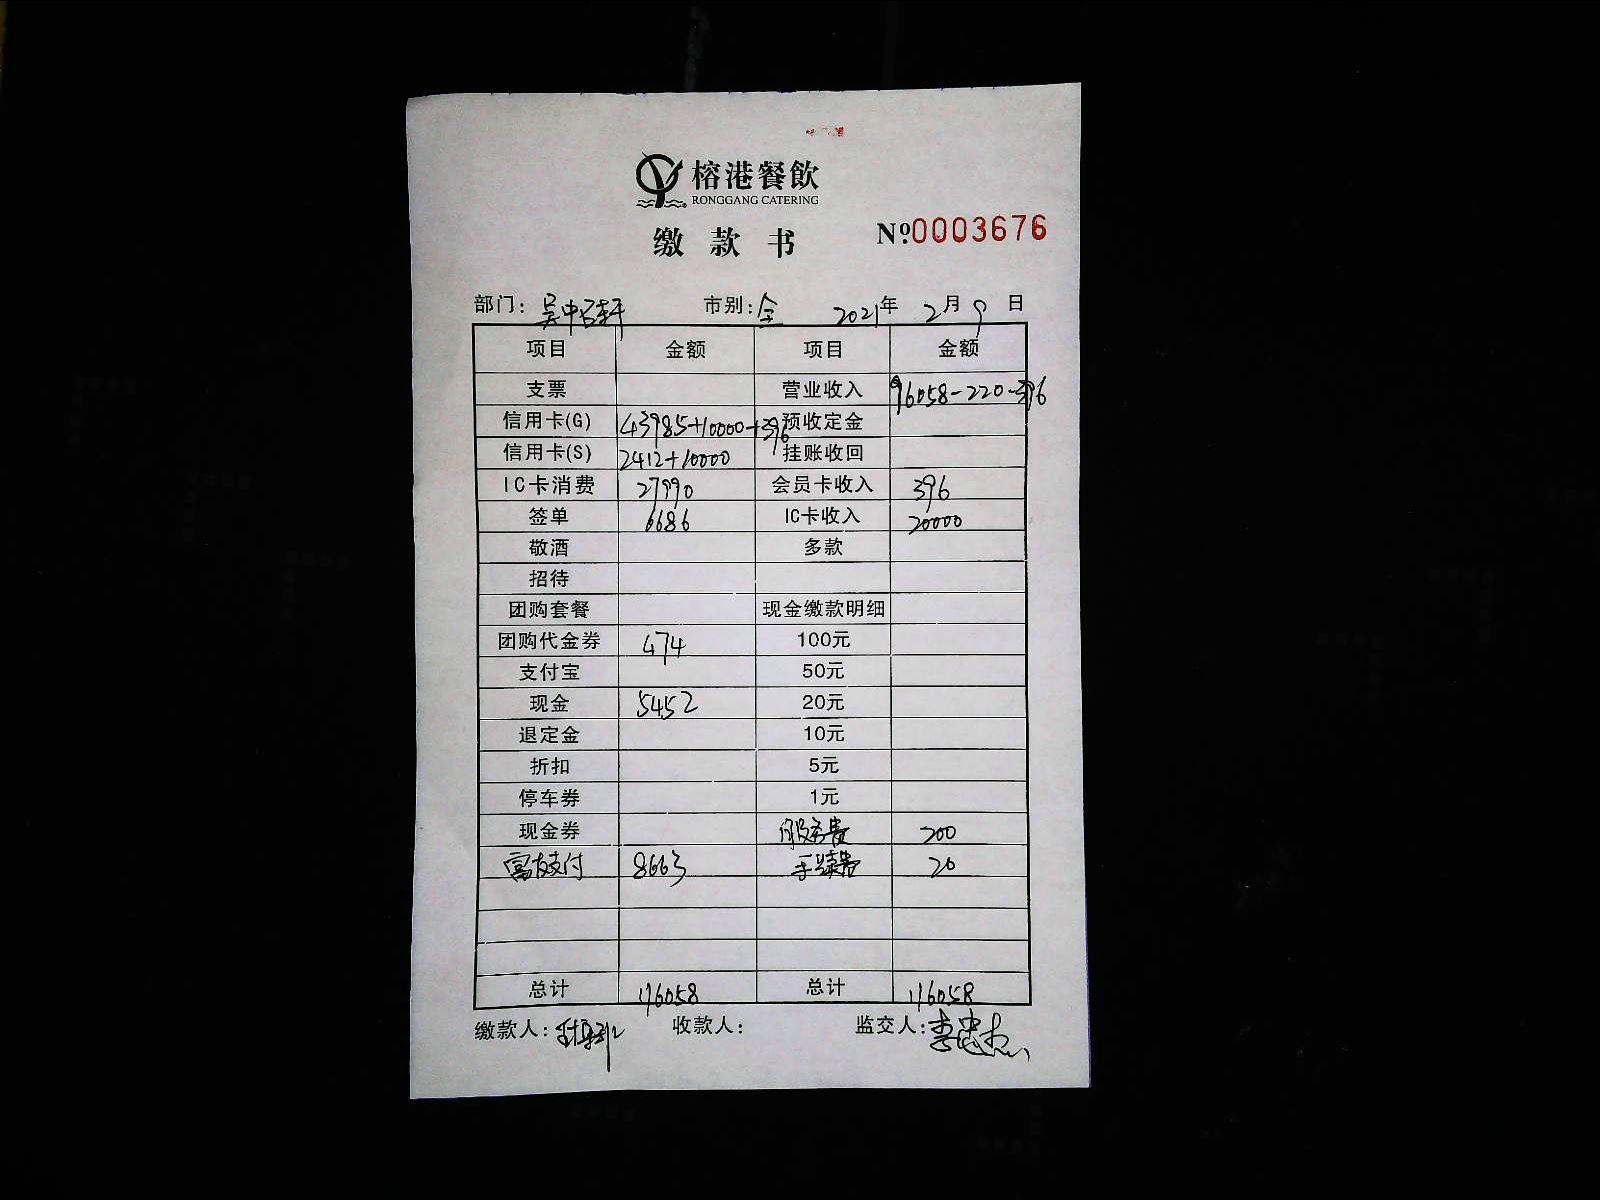 榕港餐飲
RONGGANG CATERING
缴款书 №0003676
部门: 吴中 市别: 全 2021年 2月 9日
项目 金额 项目 金额
支票 营业收入 96058-220-396
信用卡(G) 43985+10000+396 预收定金
信用卡(S) 2412+10000 挂账收回
IC卡消费 27990 会员卡收入 396
签单 6686 IC卡收入 20000
敬酒 多款
招待
团购套餐 现金缴款明细
团购代金券 474 100元
支付宝 50元
现金 5452 20元
退定金 10元
折扣 5元
停车券 1元
现金券 服务费 200
富友支付 8663 手续费 20
总计 116058 总计 116058
缴款人: 收款人: 监交人: 李忠杰